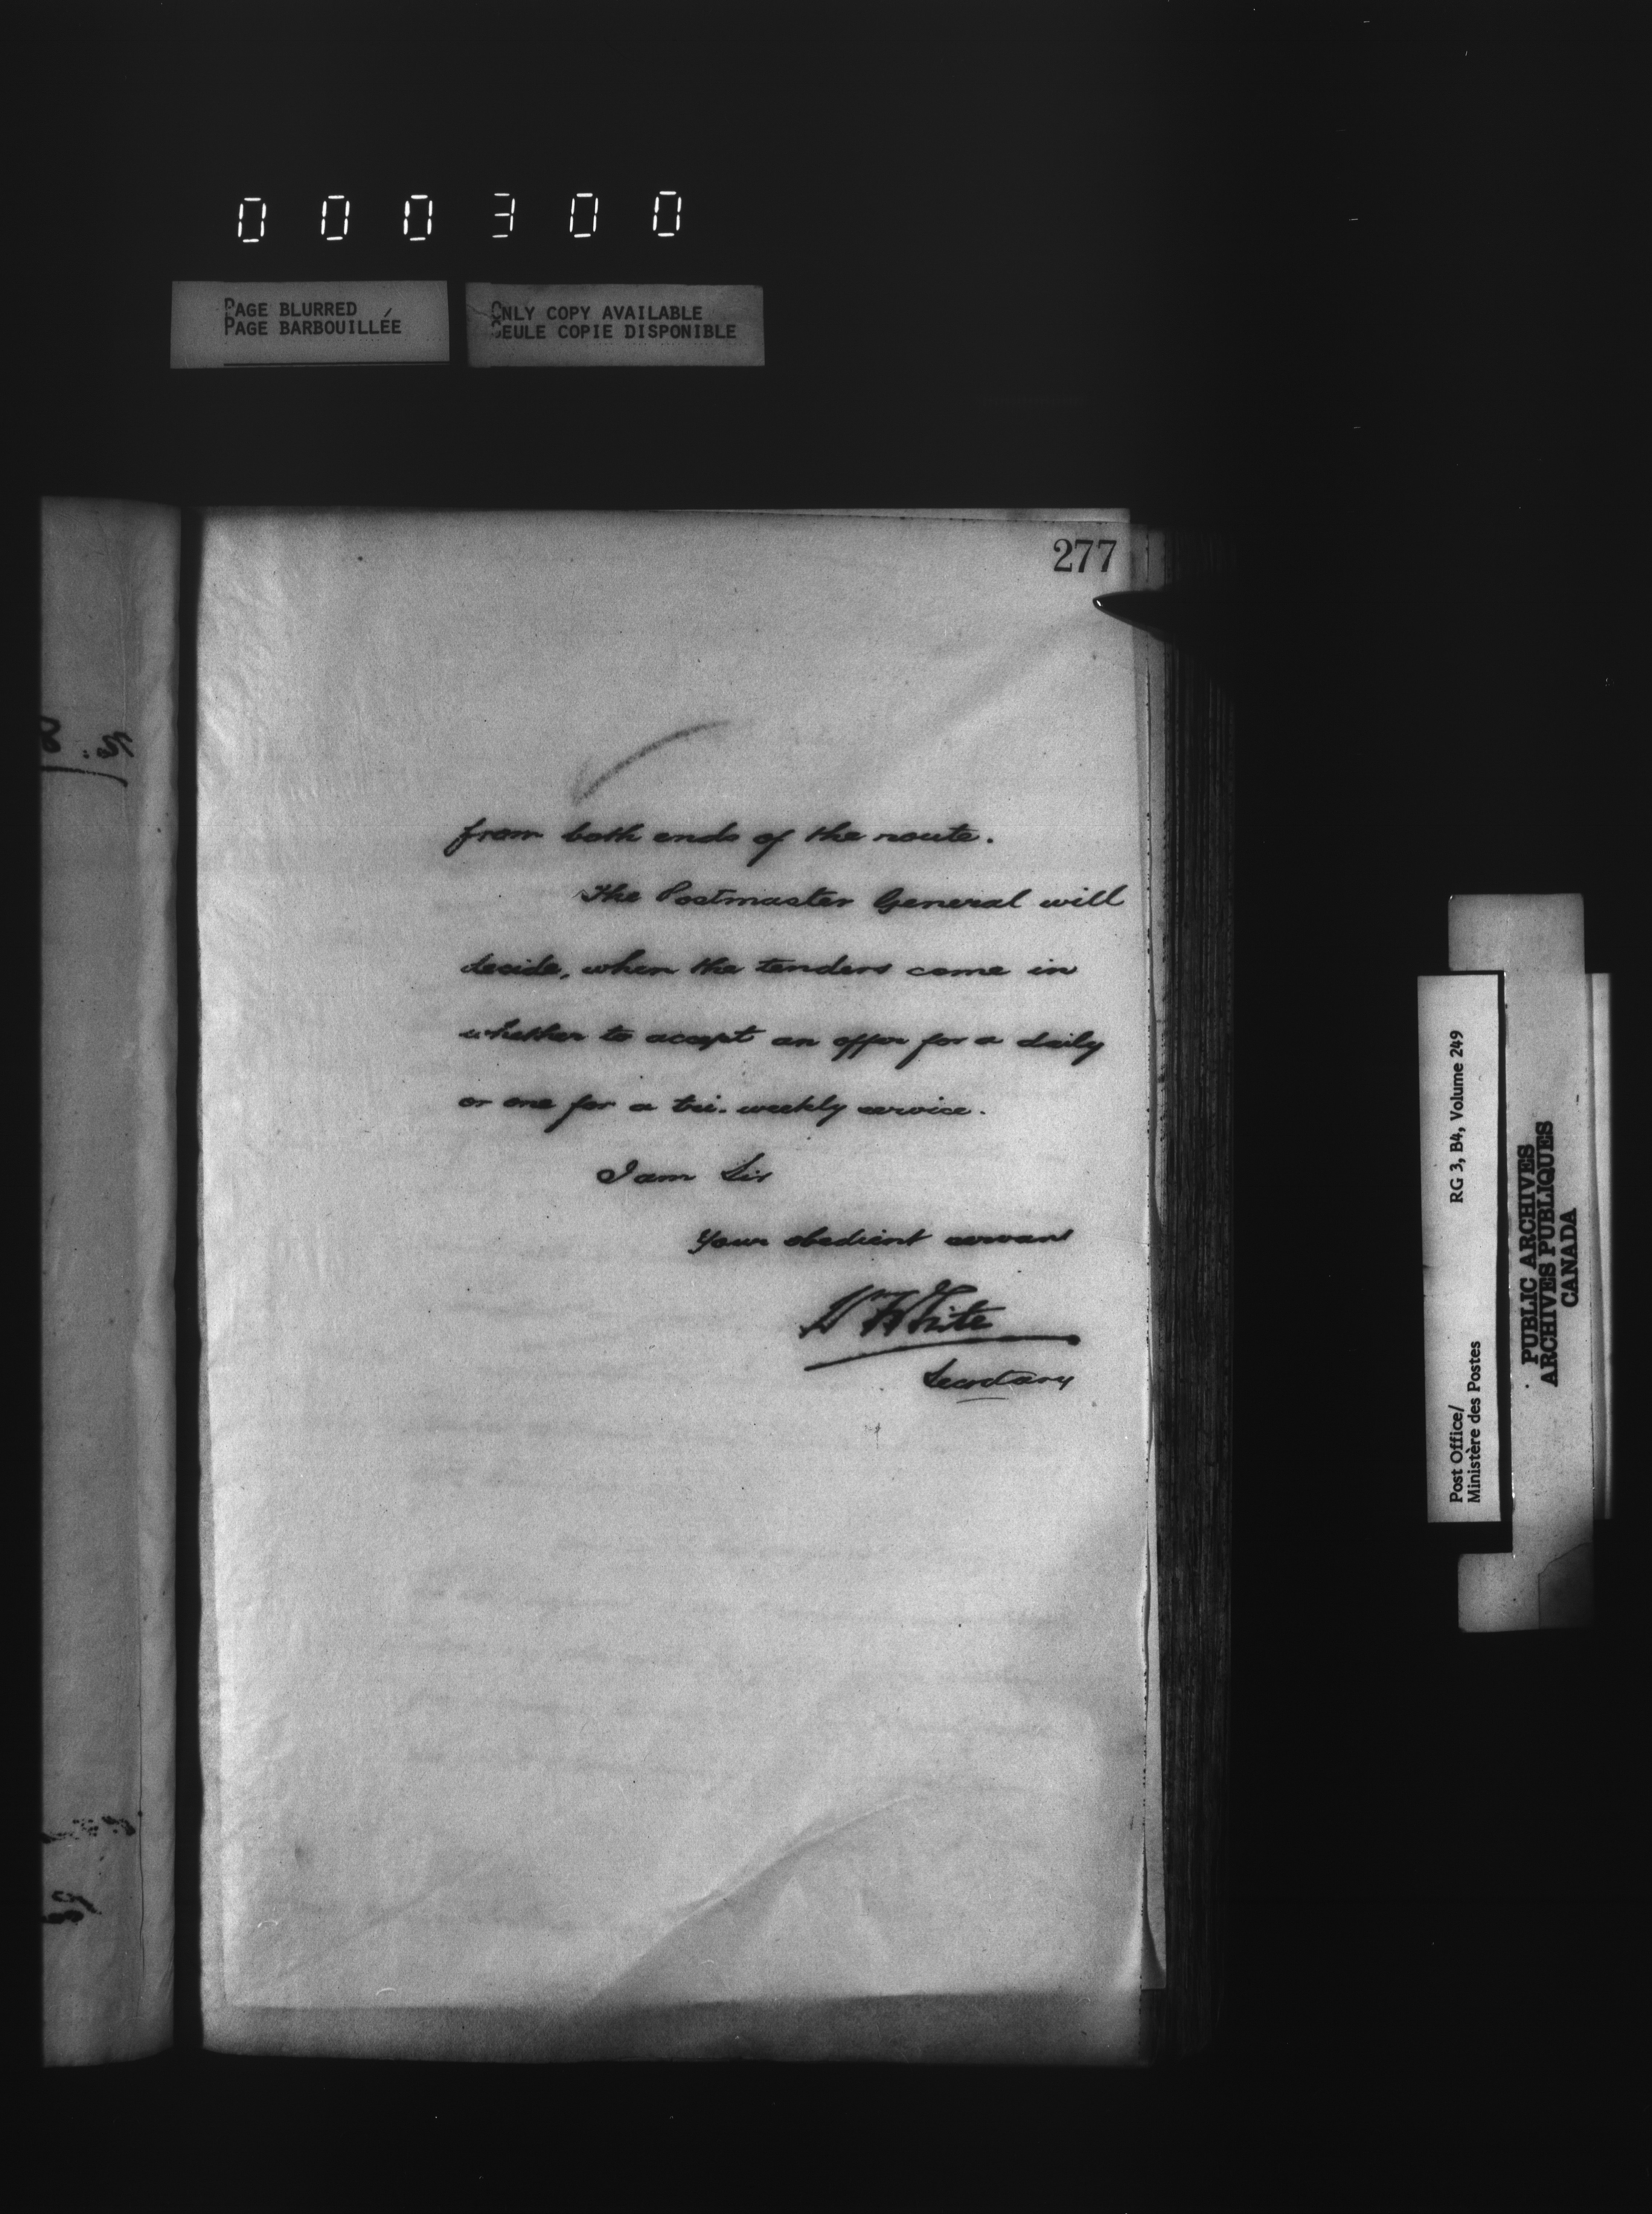 000300
PAGE BLURRED
PAGE BARBOUILLÉE
ONLY COPY AVAILABLE
SEULE COPIE DISPONIBLE
277
from both ends of the route.
The Postmaster General will
decide, when the tenders come in
whether to accept an offer for a daily
or one for a tri-weekly service.
I am Sir
Your obedient servant
Wm White
Secretary
Post Office/
Ministère des Postes
RG 3, B4, Volume 249
PUBLIC ARCHIVES
ARCHIVES PUBLIQUES
CANADA